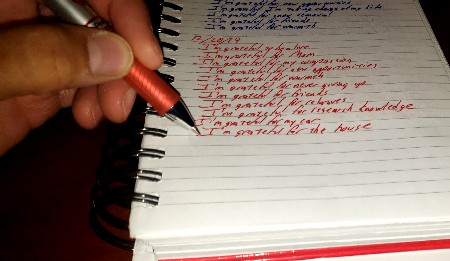 I'm grateful for new opportunities
I'm grateful for my life
I'm grateful for
I'm grateful for friends
I'm grateful for warmth
I'm grateful
I'm grateful for Mom
I'm grateful for my
I'm grateful for new opportunities
I'm grateful for warmth
I'm grateful for never giving up
I'm grateful for friends
I'm grateful for
I'm grateful for research knowledge
I'm grateful for my car
I'm grateful for the house